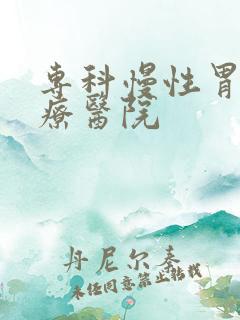 專科慢性胃
療醫院
丹尼尔秦
未经同意禁止转载